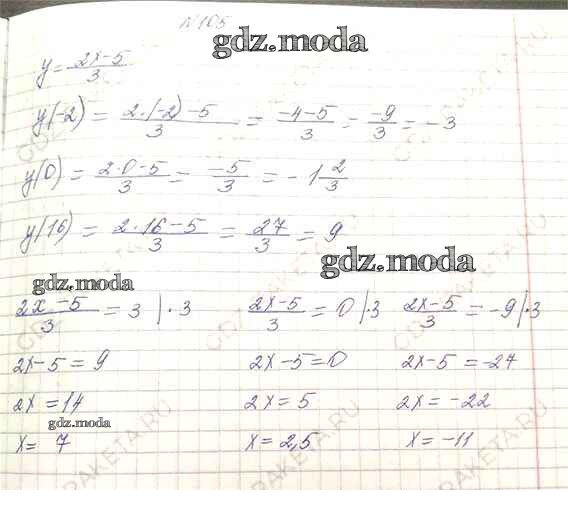 №105
gdz.moda
y = (2x-5)/3
y(-2) = (2·(-2)-5)/3 = (-4-5)/3 = -9/3 = -3
y(0) = (2·0-5)/3 = -5/3 = -1 2/3
y(16) = (2·16-5)/3 = 27/3 = 9
gdz.moda
gdz.moda
(2x-5)/3 = 3 |·3    (2x-5)/3 = 0 |·3    (2x-5)/3 = -9 |·3
2x-5 = 9    2x-5=0    2x-5 = -27
2x = 14    2x = 5    2x = -22
gdz.moda
x = 7    x = 2,5    x = -11